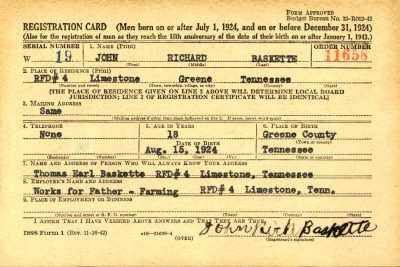 FORM APPROVED
Budget Bureau No. 33-R012-42
REGISTRATION CARD (Men born on or after July 1, 1924, and on or before December 31, 1924)
(Also for the registration of men as they reach the 18th anniversary of the date of their birth on or after January 1, 1943.)
SERIAL NUMBER 1. NAME (Print) ORDER NUMBER
W 19 JOHN RICHARD BASKETTE 11658
(First) (Middle) (Last)
2. PLACE OF RESIDENCE (Print)
RFD# 4 Limestone Greene Tennessee
(Number and street) (Town, township, village, or city) (County) (State)
[THE PLACE OF RESIDENCE GIVEN ON LINE 2 ABOVE WILL DETERMINE LOCAL BOARD
JURISDICTION; LINE 2 OF REGISTRATION CERTIFICATE WILL BE IDENTICAL]
3. MAILING ADDRESS
Same
(Mailing address if other than place indicated on line 2. If same, insert word same)
4. TELEPHONE 5. AGE IN YEARS 6. PLACE OF BIRTH
None 18 Greene County
DATE OF BIRTH (Town or county)
Aug. 15, 1924 Tennessee
(Exchange) (Number) (Mo.) (Day) (Yr.) (State or country)
7. NAME AND ADDRESS OF PERSON WHO WILL ALWAYS KNOW YOUR ADDRESS
Thomas Earl Baskette RFD# 4 Limestone, Tennessee
8. EMPLOYER'S NAME AND ADDRESS
Works for Father - Farming RFD# 4 Limestone, Tenn.
9. PLACE OF EMPLOYMENT OR BUSINESS
(Number and street or R. F. D. number) (Town) (County) (State)
I AFFIRM THAT I HAVE VERIFIED ABOVE ANSWERS AND THAT THEY ARE TRUE.
DSS Form 1 (Rev. 11-16-42) (OVER) John Baskette
(Registrant's signature)